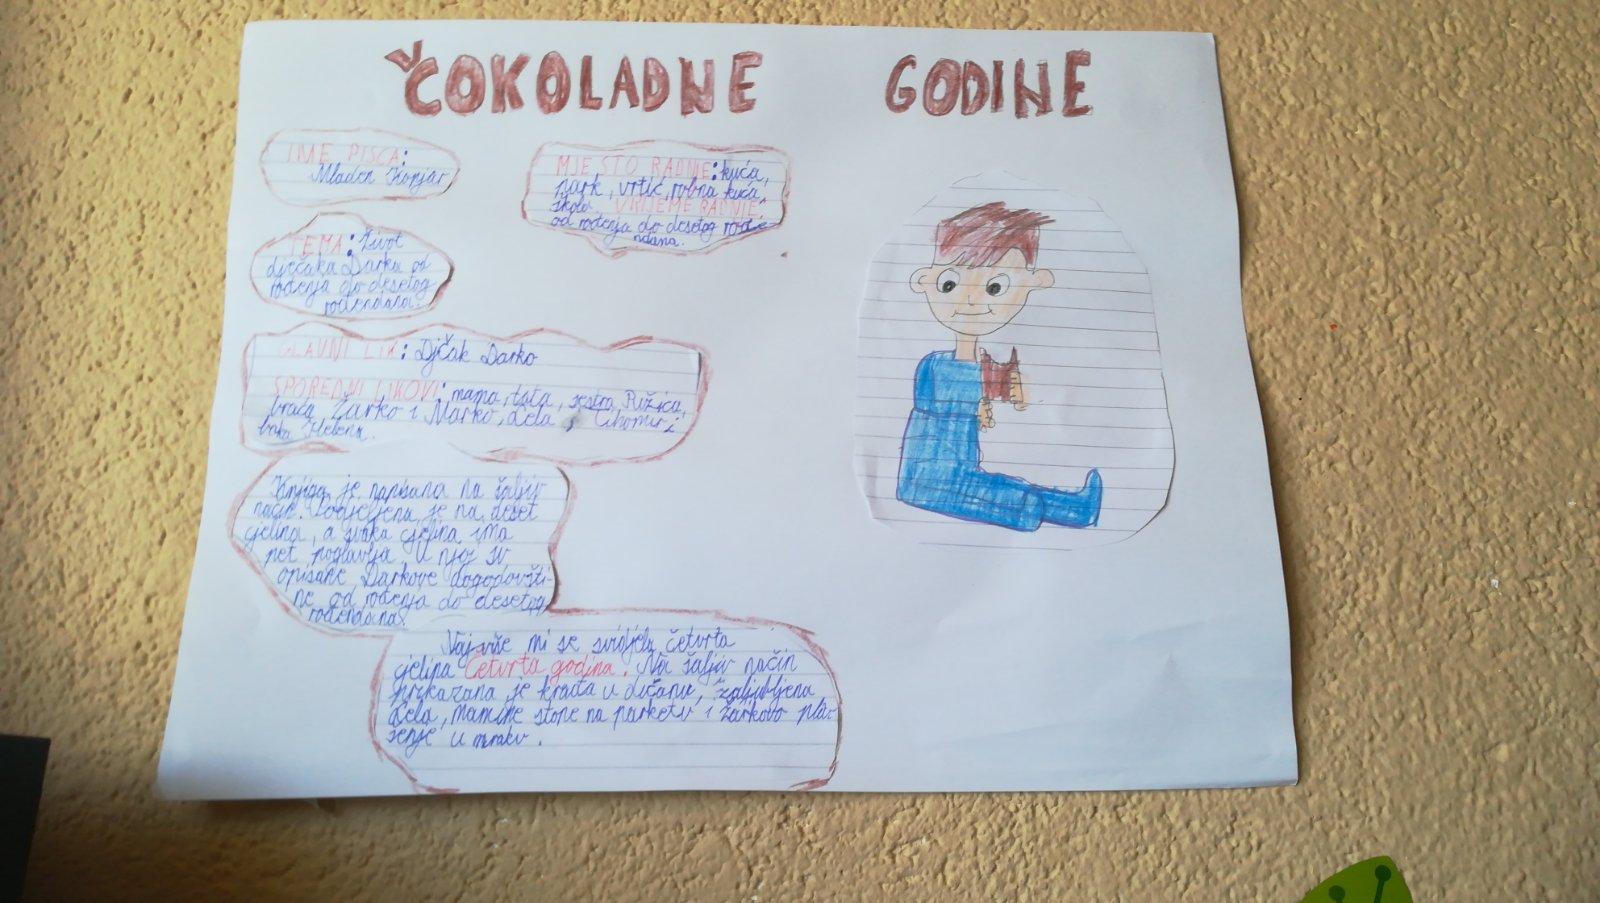 ČOKOLADNE GODINE
IME PISCA:
Mladen Kopjar
MJESTO RADNJE: kuća,
park, vrtić, robna kuća,
škola VRIJEME RADNJE:
od rođenja do desetog rođe
ndana.
TEMA: Život
dječaka Darka od
rođenja do desetog
rođendana.
GLAVNI LIK: Dječak Darko
SPOREDNI LIKOVI: mama, tata, sestra Ružica,
braća Žarko i Marko, Tihomir i
baka Helena.
Knjiga je napisana na šaljiv
način. Podjeljena je na deset
cjelina, a svaka cjelina ima
pet poglavlja. U njoj su
opisane Darkove dogodovšti-
ne od rođenja do desetog
rođendana.
Najviše mi se svidjela četvrta
cjelina Četvrta godina. Na šaljiv način
prikazana je krađa u dućanu, zaljubljena
mamine stope na parketu i Žarkovo pla-
šenje u mraku.